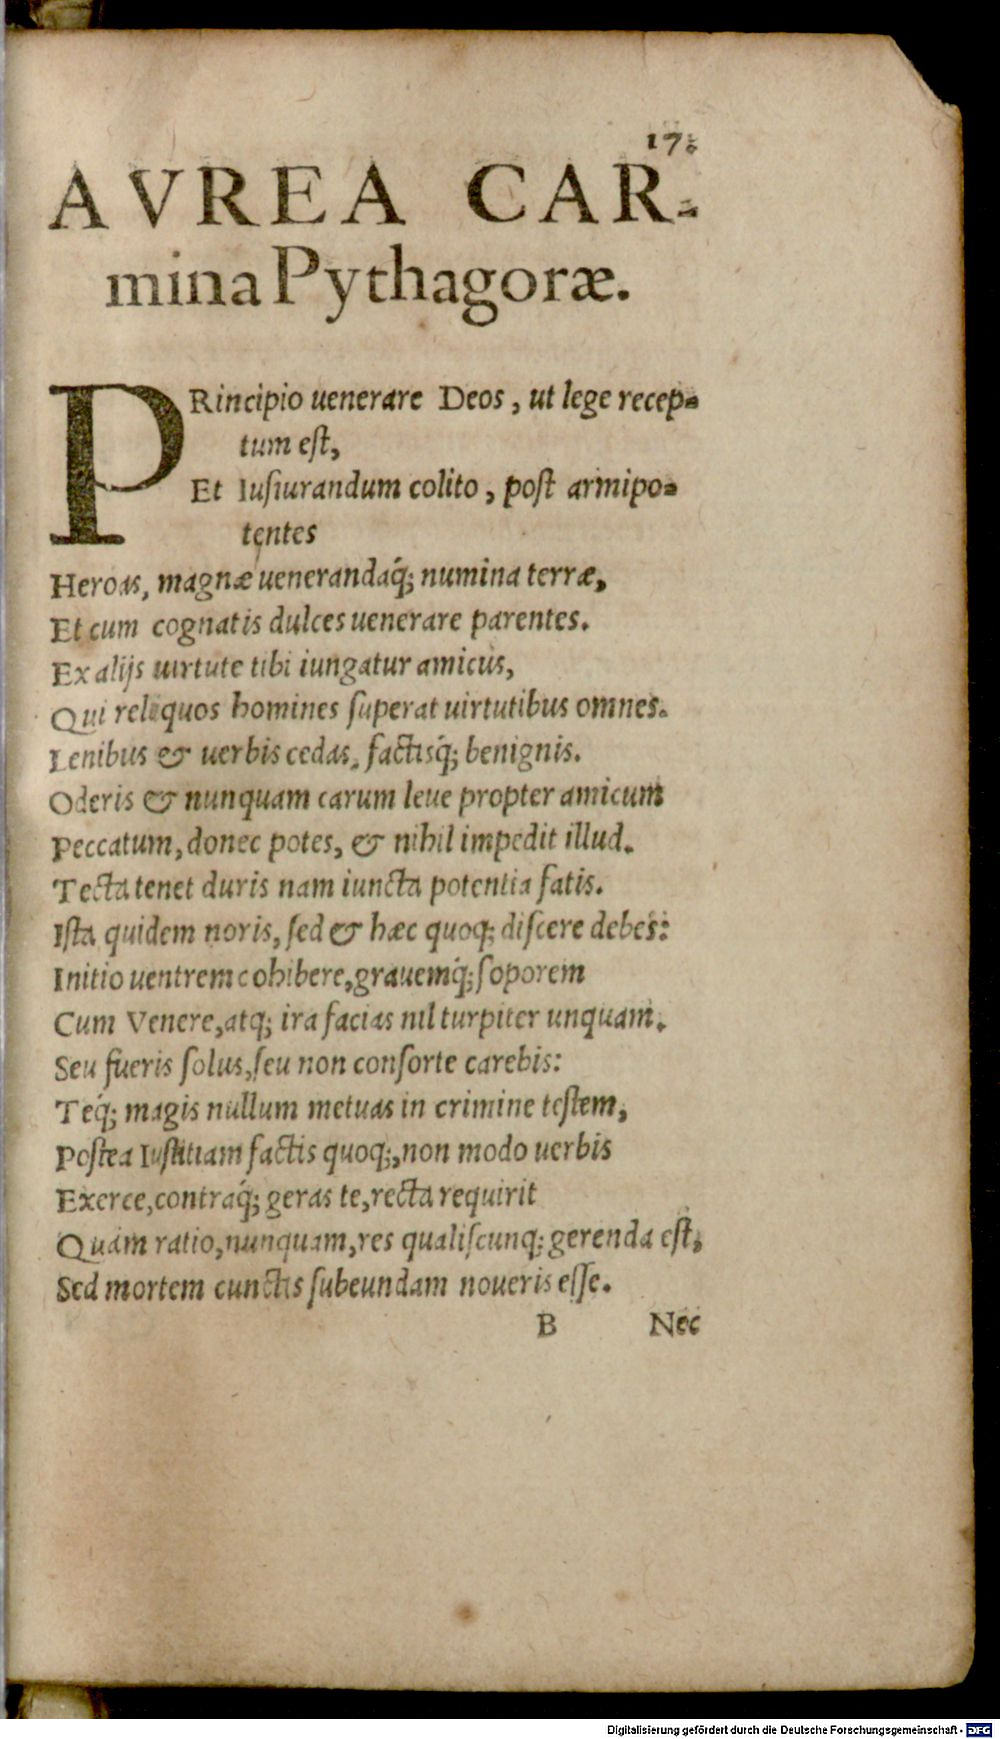 17.
AVREA CAR-
mina Pythagoræ.
PRincipio uenerare Deos, ut lege recep-
tum eſt,
Et Iuſiurandum colito, poſt armipo-
tentes
Heroas, magnæ uenerandaq́; numina terræ,
Et cum cognatis dulces uenerare parentes.
Ex alijs uirtute tibi iungatur amicus,
Qui reliquos homines ſuperat uirtutibus omnes.
Lenibus & uerbis cedas, factisq́; benignis.
Oderis & nunquam carum leue propter amicum
Peccatum, donec potes, & nihil impedit illud.
Tecta tenet duris nam iuncta potentia fatis.
Iſta quidem noris, ſed & hæc quoq; diſcere debes:
Initio uentrem cohibere, grauemq́; ſoporem
Cum Venere, atq; ira facias nil turpiter unquam.
Seu fueris ſolus, ſeu non conſorte carebis:
Teq́; magis nullum metuas in crimine teſtem,
Poſtea Iuſtitiam factis quoq;, non modo uerbis
Exerce, contraq́; geras te, recta requirit
Quàm ratio, nunquam, res qualiſcunq; gerenda eſt,
Sed mortem cunctis ſubeundam noueris eſſe.
B Nec
Digitalisierung gefördert durch die Deutsche Forschungsgemeinschaft - DFG